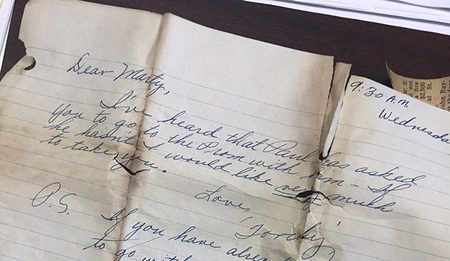 9:30 A.M.
Wednesda
Dear Marty,
I've heard that Paul has asked
you to go to the Prom with him - If
he hasn't I would like very much
to take you.
Love,
"Torchy"
P.S. If you have alrea
to go